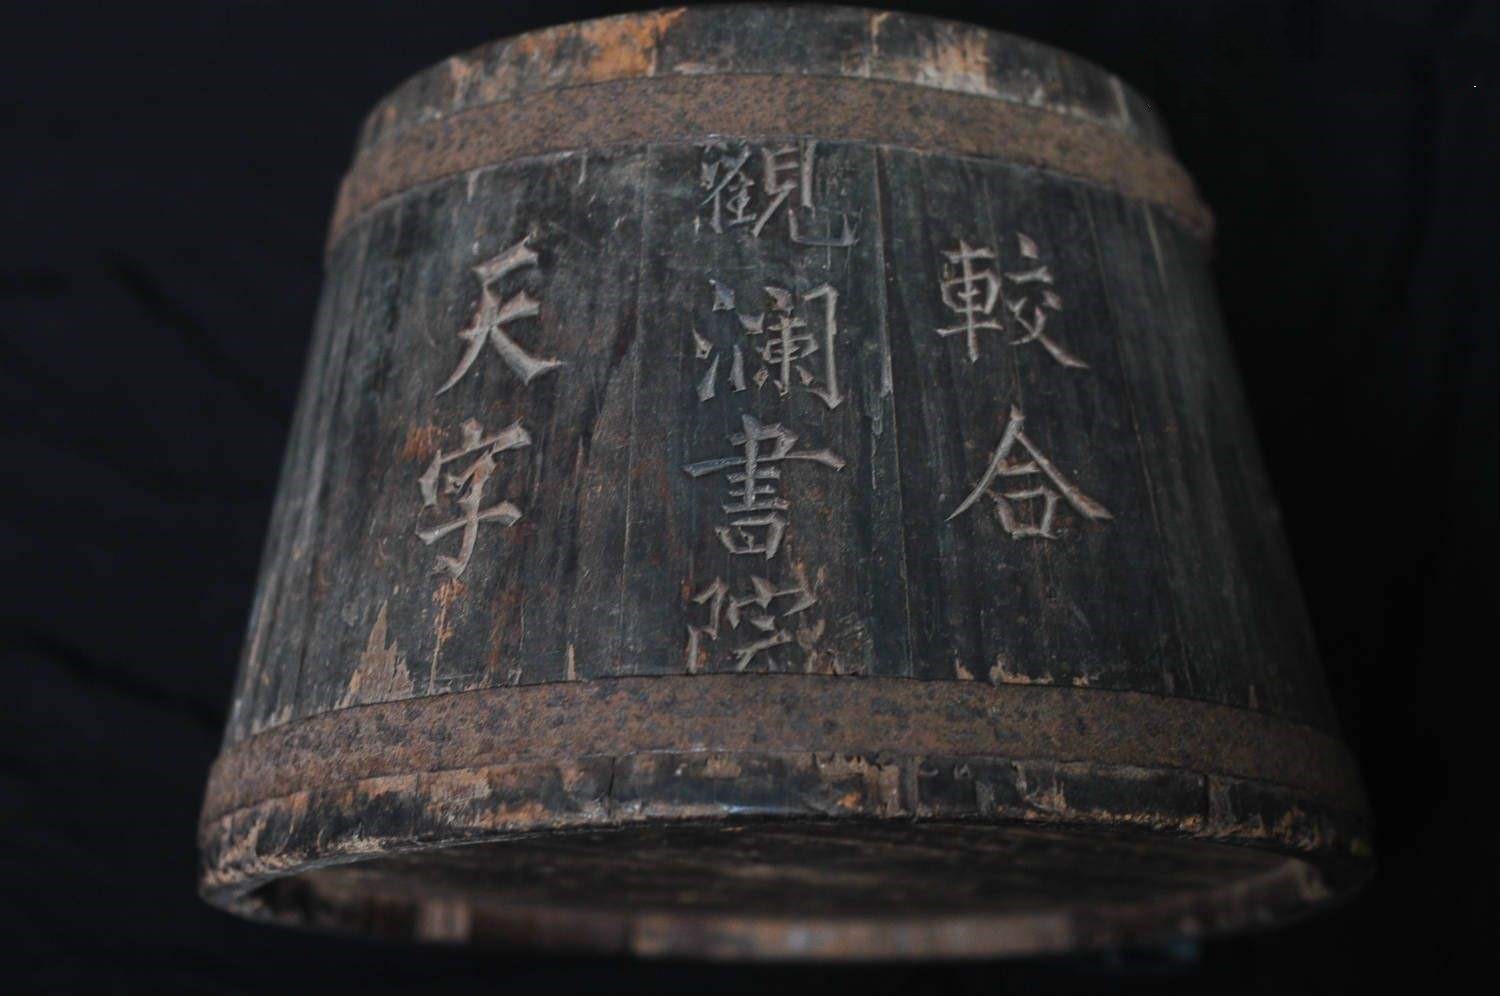 較合
觀瀾書院
天字